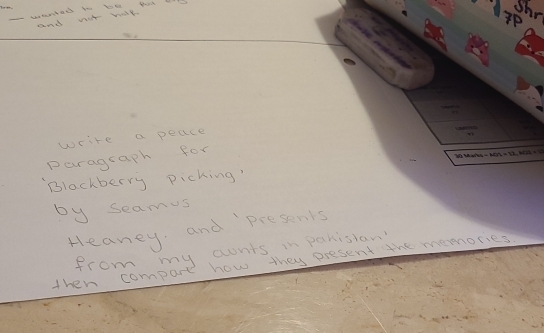 — wanted to be
and not half.
Shr
7P
write a peace
paragraph for
'Blackberry Picking'
by Seamus
Heaney. and 'Presents
from my aunts in pakistan'
then compare how they present the memories.